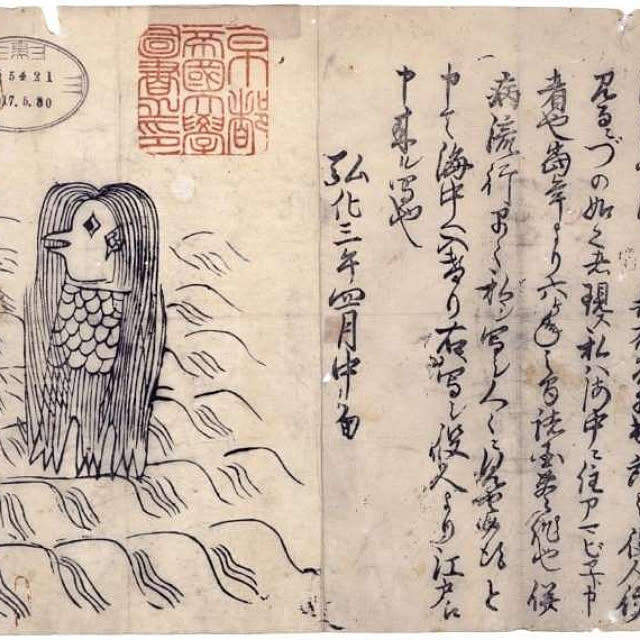 見るニづの如く者現ス私ハ海中ニ住アマビヱト申
者也当年より六ヶ年之間諸国豊作也併
病流行早々私ヲ写シ人々ニ見せ候得と
申て海中へ入けり右写シ役人より江戸え
申来ル写也
弘化三年四月中旬
京都
帝國大學
圖書之印
5421
17.5.30